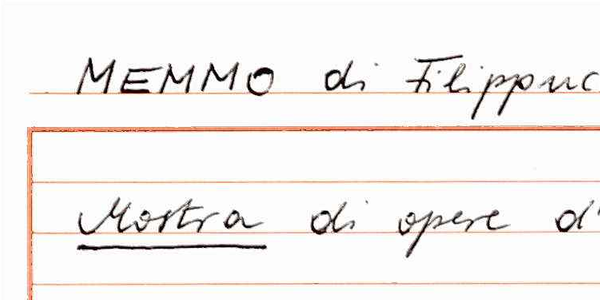 MEMMO di Filippuc
Mostra di opere d'